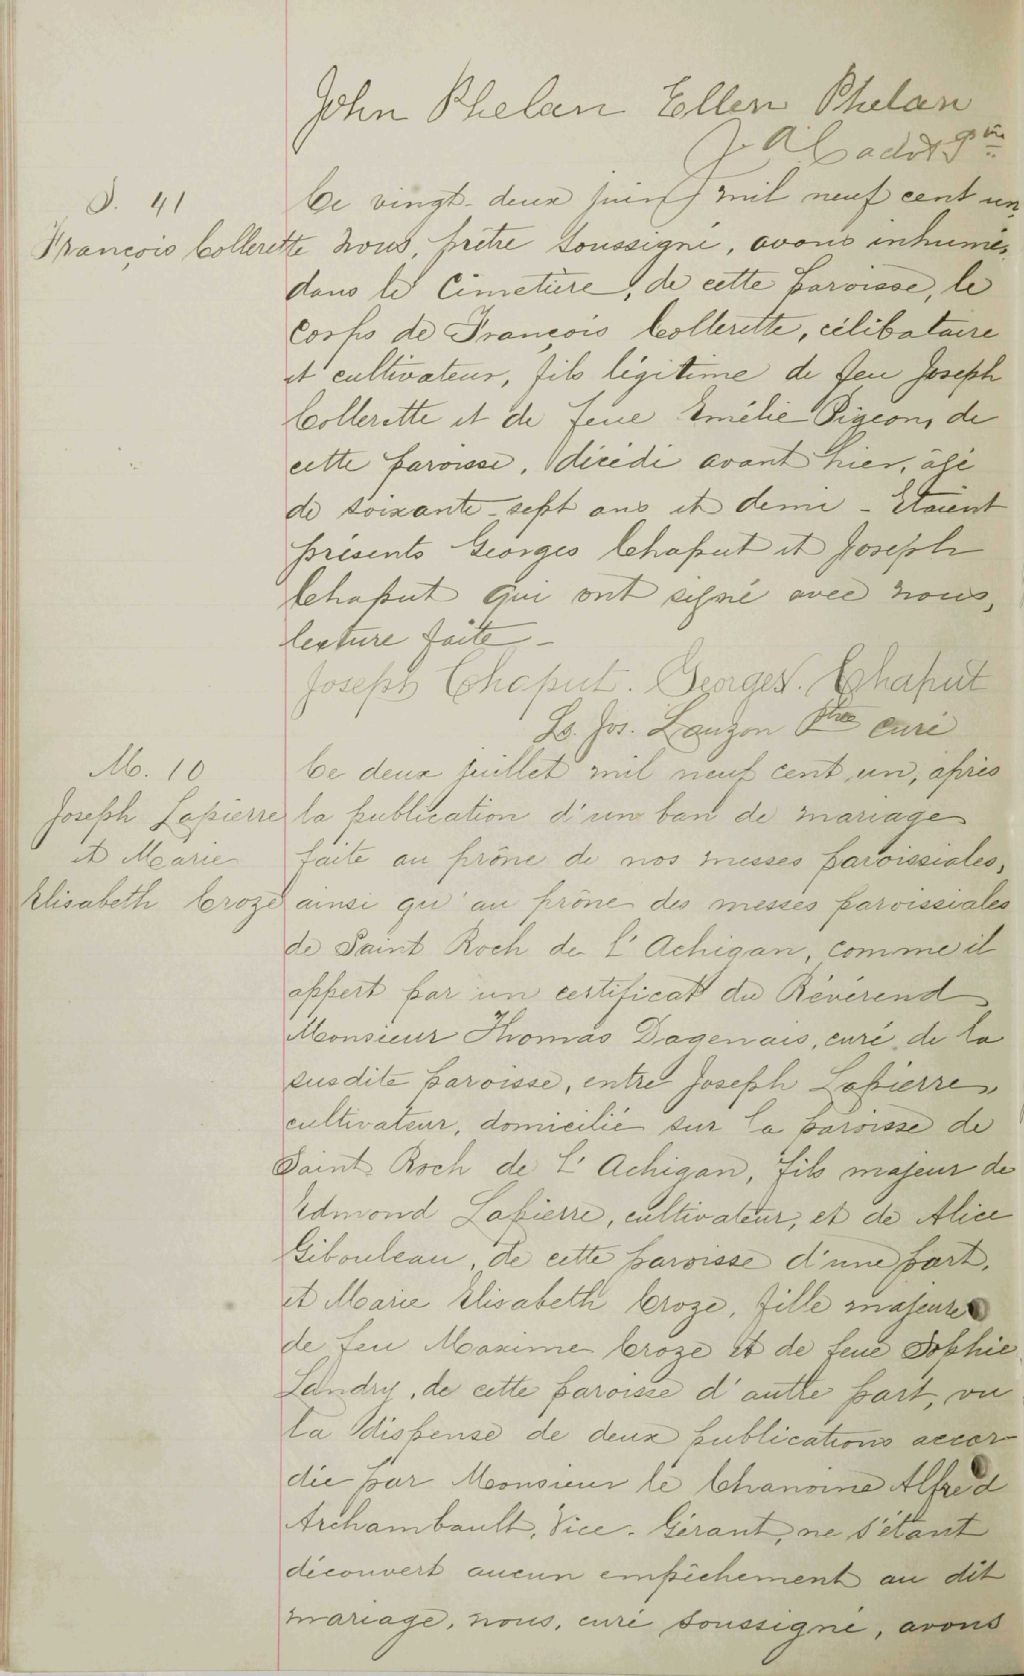 John Phelan Ellen Phelan
J. A. Cadot Ptre
S. 41
François Collerette
Ce vingt-deux juin mil neuf cent un,
nous, prêtre soussigné, avons inhumé,
dans le Cimetière, de cette paroisse, le
corps de François Collerette, célibataire
et cultivateur, fils légitime de feu Joseph
Collerette et de feue Emélie Pigeon, de
cette paroisse, décédé avant hier, âgé
de soixante-sept ans et demi - Etaient
présents Georges Chaput et Joseph
Chaput qui ont signé avec nous,
lecture faite -
Joseph Chaput. Georges. Chaput
Ls. Jos. Lauzon Ptre curé
M. 10
Joseph Lapierre
et Marie
Elisabeth Croze
Ce deux juillet mil neuf cent un, après
la publication d'un ban de mariage
faite au prône de nos messes paroissiales,
ainsi qu'au prône des messes paroissiales
de Saint Roch de L'Achigan, comme il
appert par un certificat du Révérend
Monsieur Thomas Dagenais, curé de la
susdite paroisse, entre Joseph Lapierre,
cultivateur, domicilié sur la paroisse de
Saint Roch de L'Achigan, fils majeur de
Edmond Lapierre, cultivateur, et de Alice
Gibouleau, de cette paroisse d'une part,
et Marie Elisabeth Croze, fille majeure
de feu Maxime Croze et de feue Sophie
Landry, de cette paroisse d'autre part, vu
la dispense de deux publications accor-
dée par Monsieur le Chanoine Alfred
Archambault, Vice-Gérant, ne s'étant
découvert aucun empêchement au dit
mariage, nous, curé soussigné, avons